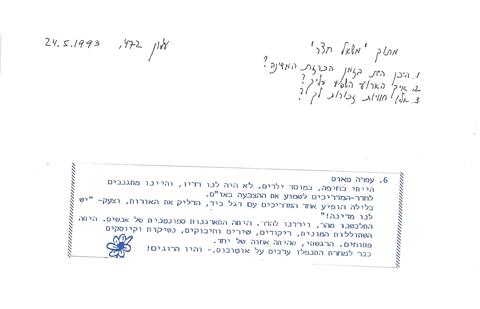 מתוך "משאל חצר"
עלון 472, 24.5.1993
1. היכן היית בזמן הכרזת המדינה?
2. איך הארוע השפיע עליך?
3. אלו חוויות זכורות לך?
6. עפרה טאוס
הייתי בחיפה, במוסד ילדים. לא היה לנו רדיו, והיינו מתגנבים
לחדר-המדריכים לשמוע את ההצבעה באו"ם.
בלילה הופיע אחד המדריכים עם דגל ביד, הדליק את האורות, וצעק- "יש
לנו מדינה!"
התלבשנו מהר, וירדנו להדר. היתה התארגנות ספונטנית של אנשים. היתה
השתוללות המונית, ריקודים, שירים וחיבוקים, נשיקות וקיוסקים
פתוחים. הרגשתי, שהיתה אחוה של יחד.
כבר למחרת התנפלו ערבים על אוטובוס,- והיו הרוגים!